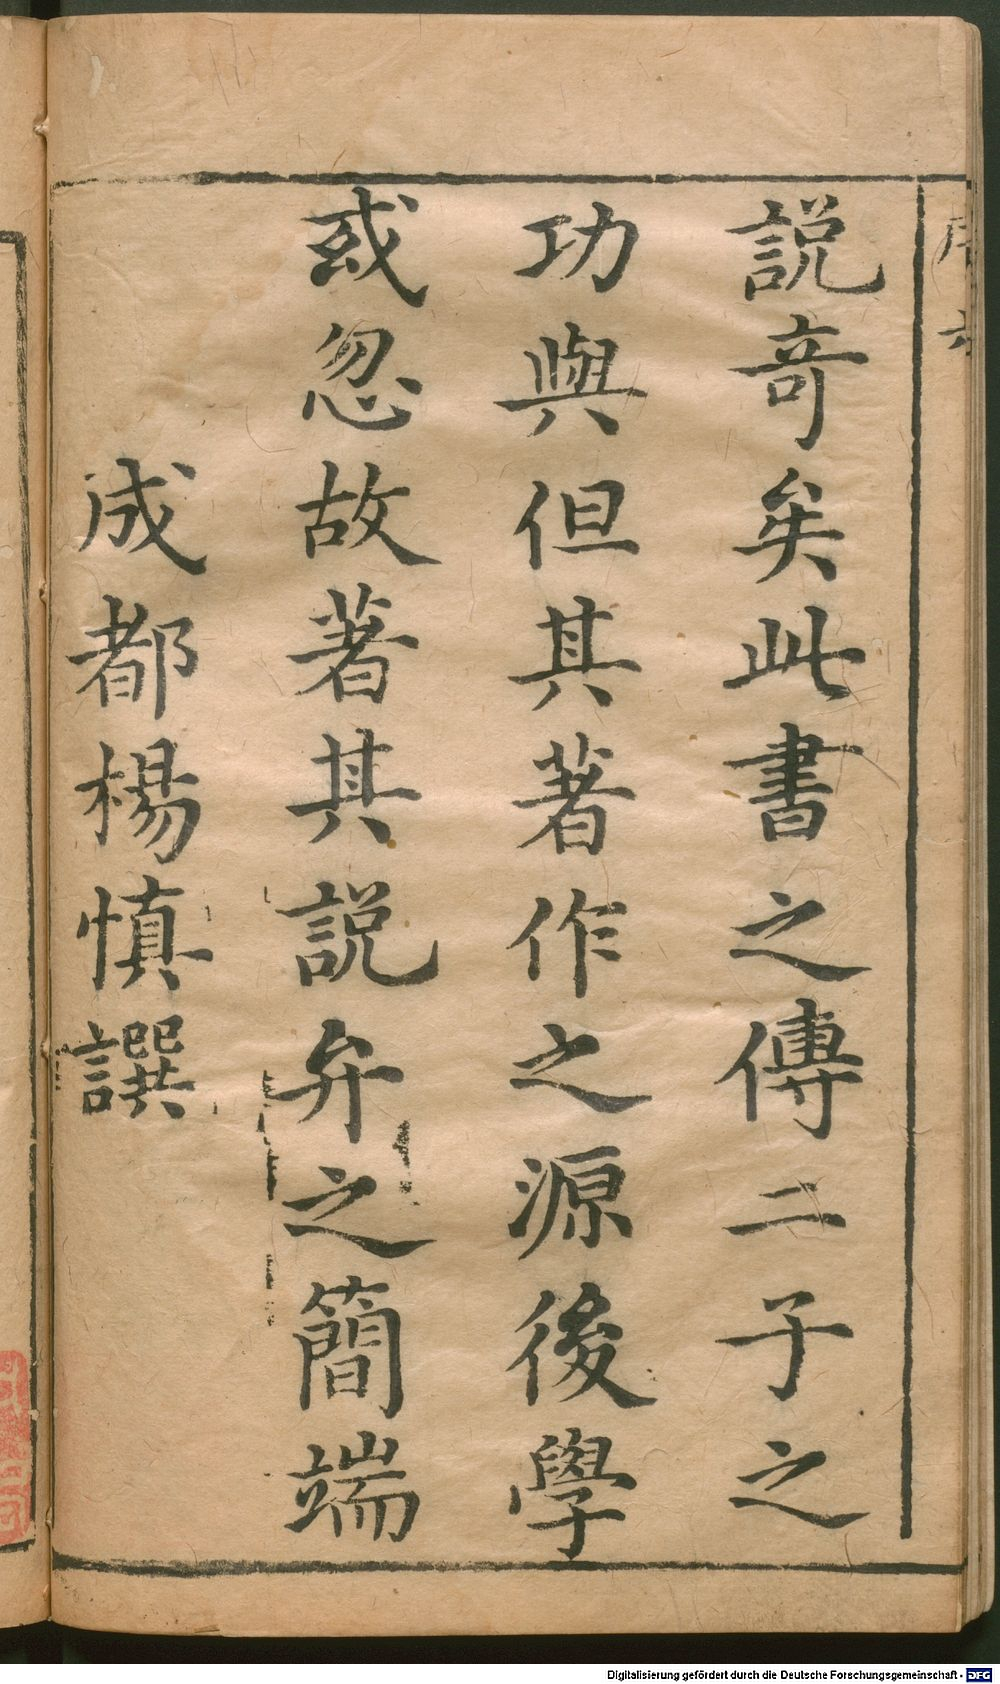 說竒矣此書之傳二子之
功與但其著作之源後學
或忽故著其說弁之簡端
成都楊慎譔
序
Digitalisierung gefördert durch die Deutsche Forschungsgemeinschaft - DFG